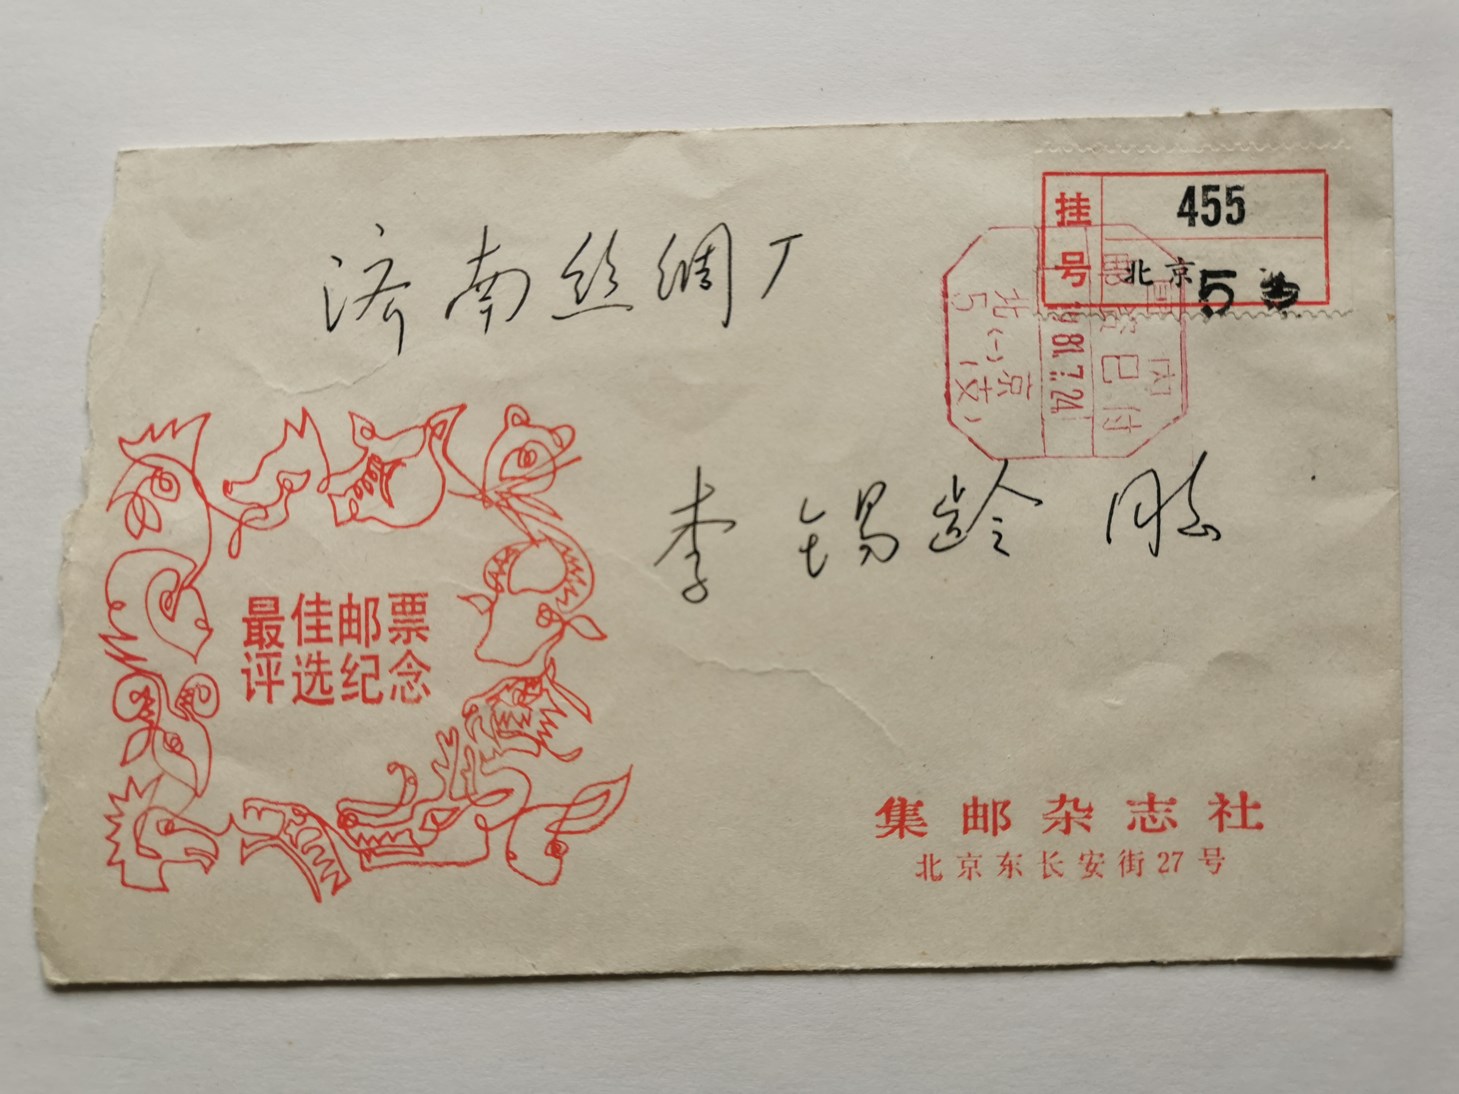 挂号
455
北京5
国内
邮资已付
1981.7.24
北(一)京
5(支)
济南丝绸厂
李锡龄 同志
最佳邮票
评选纪念
集邮杂志社
北京东长安街27号